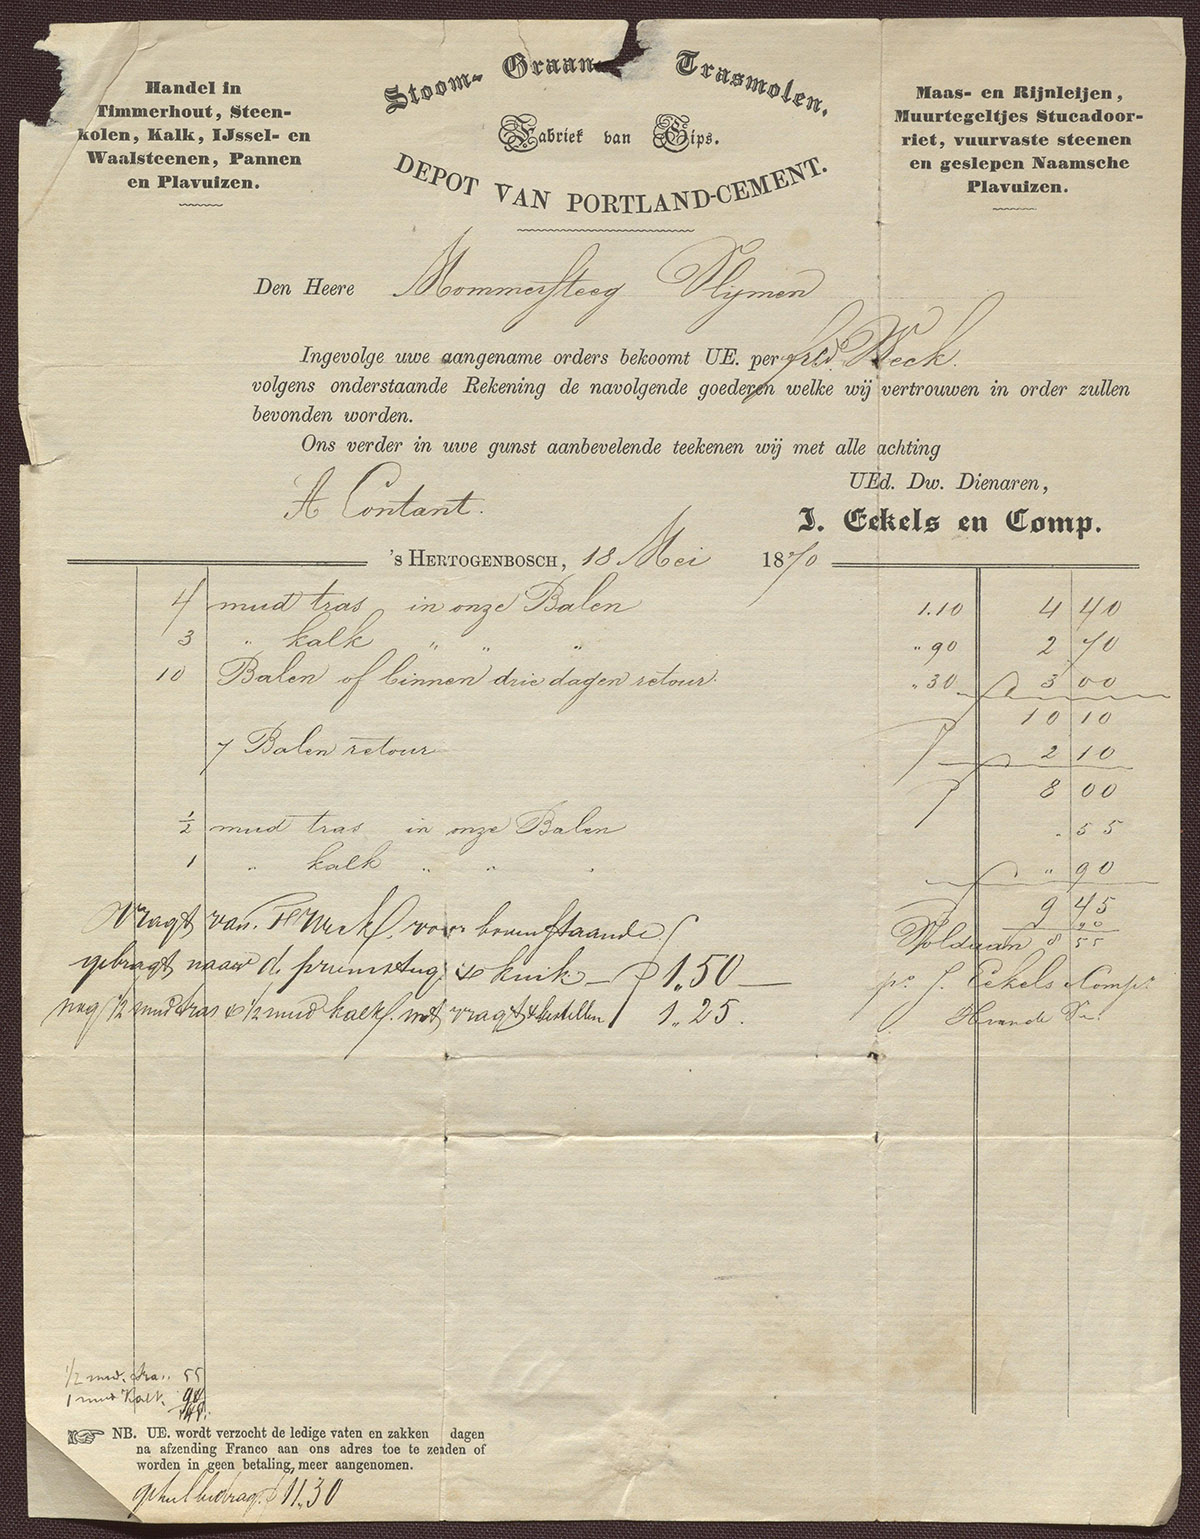 Handel in
Timmerhout, Steen-
kolen, Kalk, IJssel- en
Waalsteenen, Pannen
en Plavuizen.
Stoom- Graan- Trasmolen.
Fabriek van Gips.
DEPOT VAN PORTLAND-CEMENT.
Maas- en Rijnleijen,
Muurtegeltjes Stucadoor-
riet, vuurvaste steenen
en geslepen Naamsche
Plavuizen.
Den Heere Mommersteeg Vlijmen
Ingevolge uwe aangename orders bekoomt UE. per
volgens onderstaande Rekening de navolgende goederen welke wij vertrouwen in order zullen
bevonden worden.
Ons verder in uwe gunst aanbevelende teekenen wij met alle achting
UEd. Dw. Dienaren,
A Contant.
I. Eekels en Comp.
's HERTOGENBOSCH, 18 Mei 1870
4 mud tras in onze Balen 1.10 4 40
3 " kalk " " " " 90 2 70
10 Balen of binnen drie dagen retour. " 30 3 00
10 10
7 Balen retour 2 10
8 00
1/2 mud tras in onze Balen . 55
1 " kalk " " " " 90
9 45
90
Voldaan 8 55
po J. Eekels & Comp.
vragt van voor bovenstaande
gebragt naar kuik - 1,50
nog 1/2 mud tras & 1/2 mud kalk met vragt & bestellen 1,25.
1/2 mud. tras. 55
1 mud Kalk. 90
145.
NB. UE. wordt verzocht de ledige vaten en zakken dagen
na afzending Franco aan ons adres toe te zenden of
worden in geen betaling meer aangenomen.
geheel bedrag 11.30